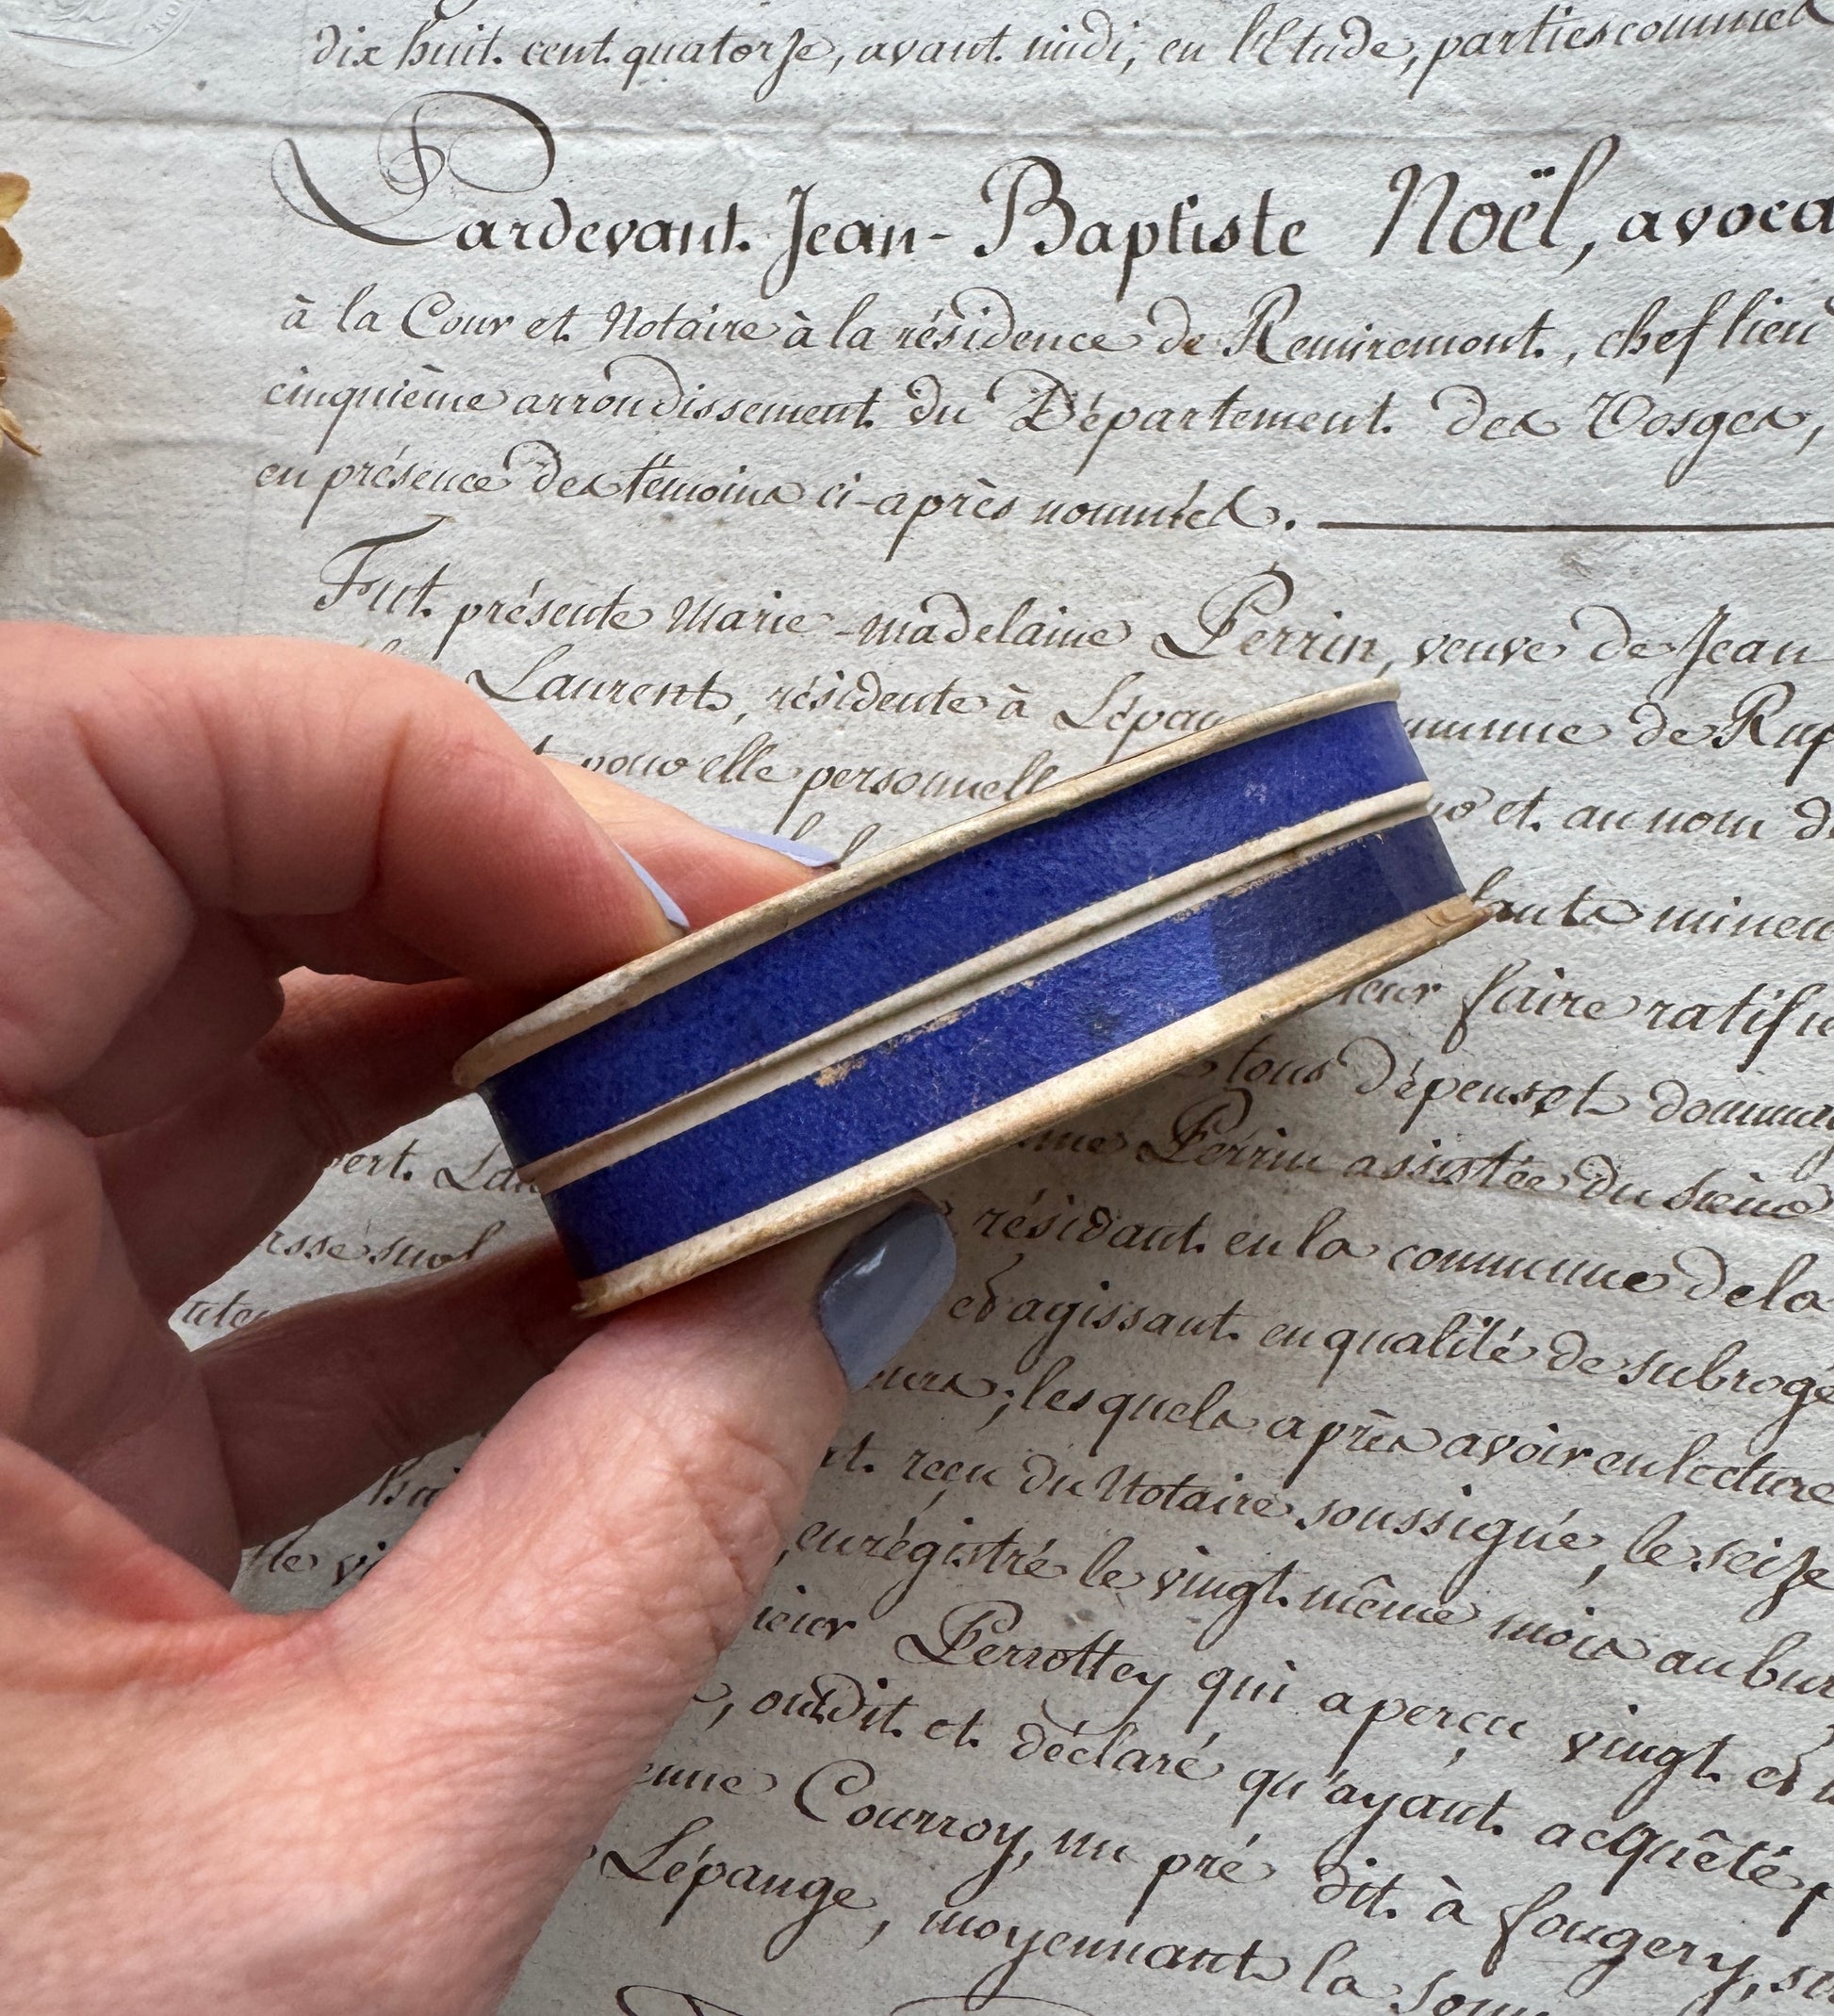 dix huit cent quatorze, avant midi, en l'Etude, parties comme
Pardevant Jean-Baptiste Noël, avoca
à la Cour et Notaire à la résidence de Remiremont, chef lieu
cinquième arrondissement du Département des Vosges,
en présence des témoins ci-après nommés.
Fut présente Marie-madelaine Perrin, veuve de Jean
Laurent, résidente à Lépan mmune de Rup
pour elle personnell et au nom d
mineu
faire ratifi
tous dépens et domma
Perrin assistée du sieur
résidant en la commune de la
et agissant en qualité de subrogé
lesquels après avoir eu lecture
reçu du Notaire soussigné, le seize
enrégistré le vingt même mois au bur
Perrottey qui a perçu vingt et
, ont dit et déclaré qu'ayant acquêté
enne Courroy, un pré dit à fougery, su
Lépange, moyennant la som